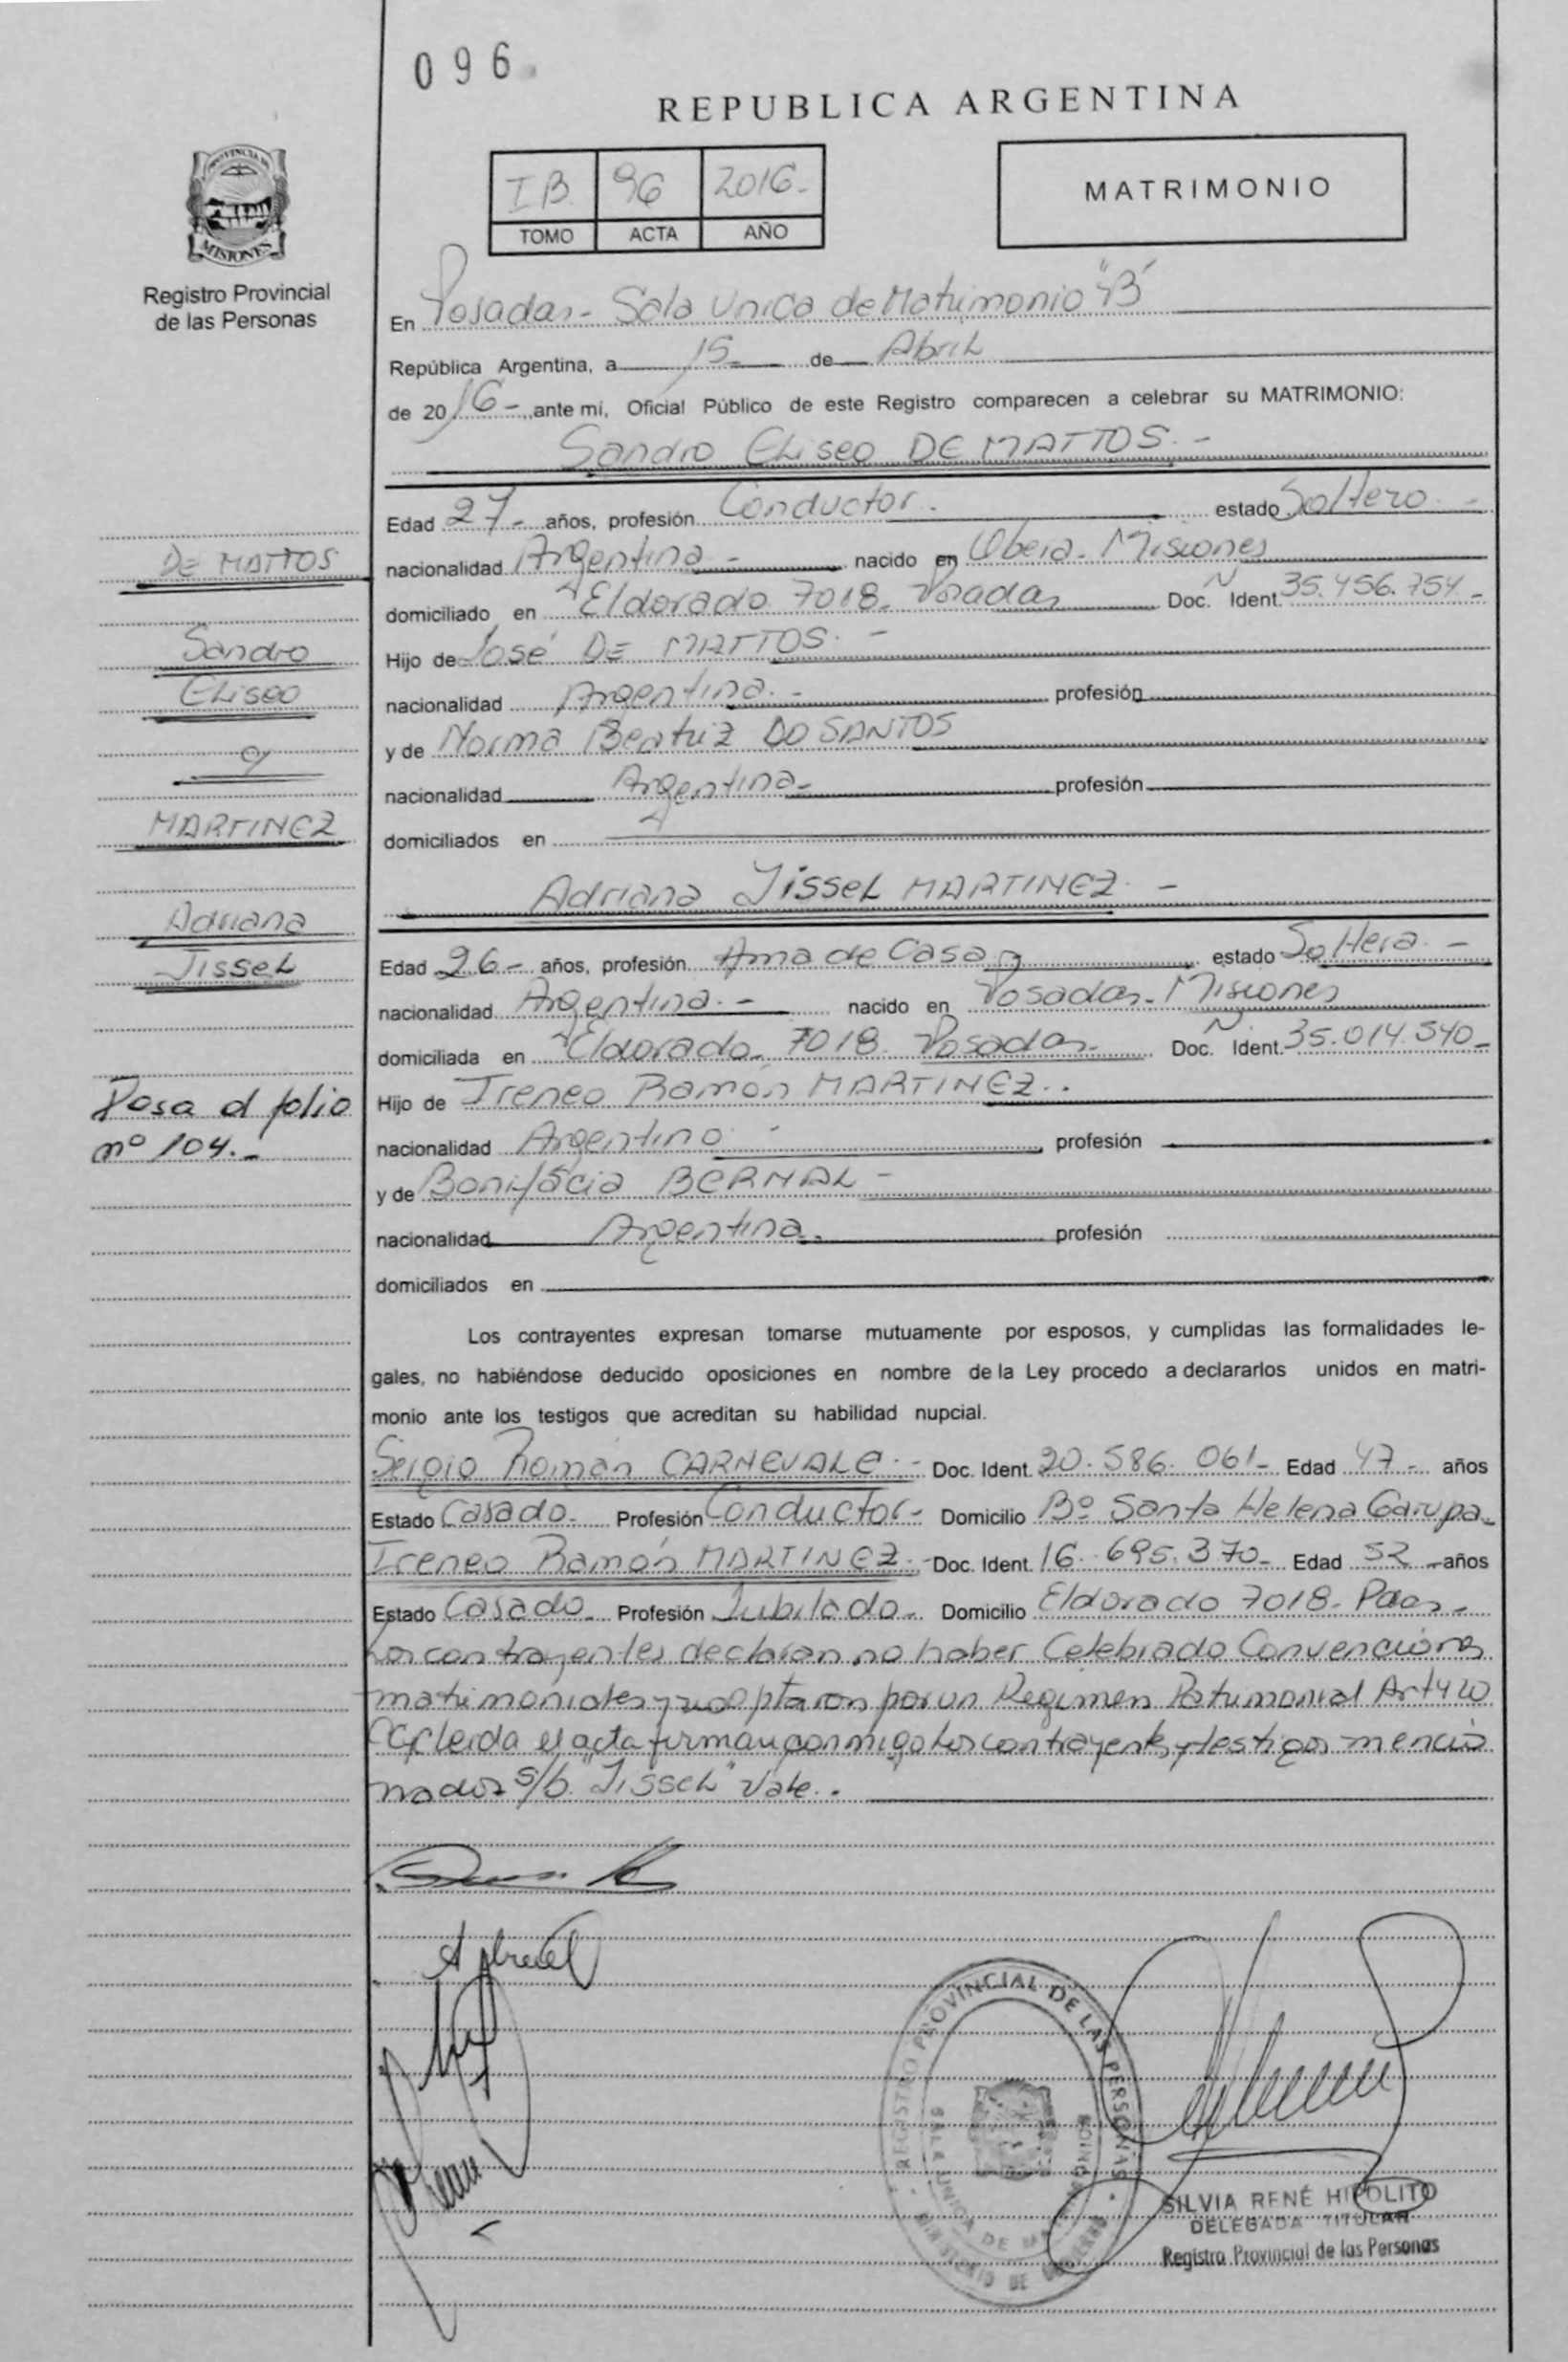 096
REPUBLICA ARGENTINA
PROVINCIA DE
MISIONES
Registro Provincial
de las Personas
IB. 96 2016.-
TOMO ACTA AÑO
MATRIMONIO
En Posadas.- Sala Unica de Matrimonio "B"
República Argentina, a 15 de Abril
de 2016.- ante mí, Oficial Público de este Registro comparecen a celebrar su MATRIMONIO:
Sandro Eliseo DE MATTOS.-
Edad 27.- años, profesión Conductor.- estado Soltero.-
nacionalidad Argentina.- nacido en Obera.- Misiones
domiciliado en Eldorado 7018.- Posadas Doc. Ident. N° 35.456.754.-
Hijo de José DE MATTOS.-
nacionalidad Argentina.- profesión
y de Norma Beatriz DO SANTOS
nacionalidad Argentina.- profesión
domiciliados en
Adriana Jissel MARTINEZ.-
Edad 26.- años, profesión Ama de Casa estado Soltera.-
nacionalidad Argentina.- nacido en Posadas.- Misiones
domiciliada en Eldorado 7018. Posadas.- Doc. Ident. N° 35.014.540.-
Hijo de Ireneo Ramón MARTINEZ.-
nacionalidad Argentino.- profesión
y de Bonifacia BERNAL.-
nacionalidad Argentina.- profesión
domiciliados en
DE MATTOS
Sandro
Eliseo
y
MARTINEZ
Adriana
Jissel
Pasa al folio
nº 104.-
Los contrayentes expresan tomarse mutuamente por esposos, y cumplidas las formalidades le-
gales, no habiéndose deducido oposiciones en nombre de la Ley procedo a declararlos unidos en matri-
monio ante los testigos que acreditan su habilidad nupcial.
Sergio Román CARNEVALE.- Doc. Ident. 20.586.061.- Edad 47.- años
Estado Casado.- Profesión Conductor.- Domicilio Bº Santa Helena Garupa.-
Ireneo Ramón MARTINEZ.- Doc. Ident. 16.695.370.- Edad 52.- años
Estado Casado.- Profesión Jubilado.- Domicilio Eldorado 7018.- Pdas.-
Los contrayentes declaran no haber Celebrado Convenciones
matrimoniales y no optaron por un Regimen Patrimonial Art 420
leida el acta firman conmigo los contrayentes y testigos mencio
nados s/b. "Jissel" Vale.-
REGISTRO PROVINCIAL DE LAS PERSONAS
SALA UNICA DE
MINISTERIO DE GOBIERNO
SILVIA RENÉ HIPOLITO
DELEGADA TITULAR
Registro Provincial de las Personas